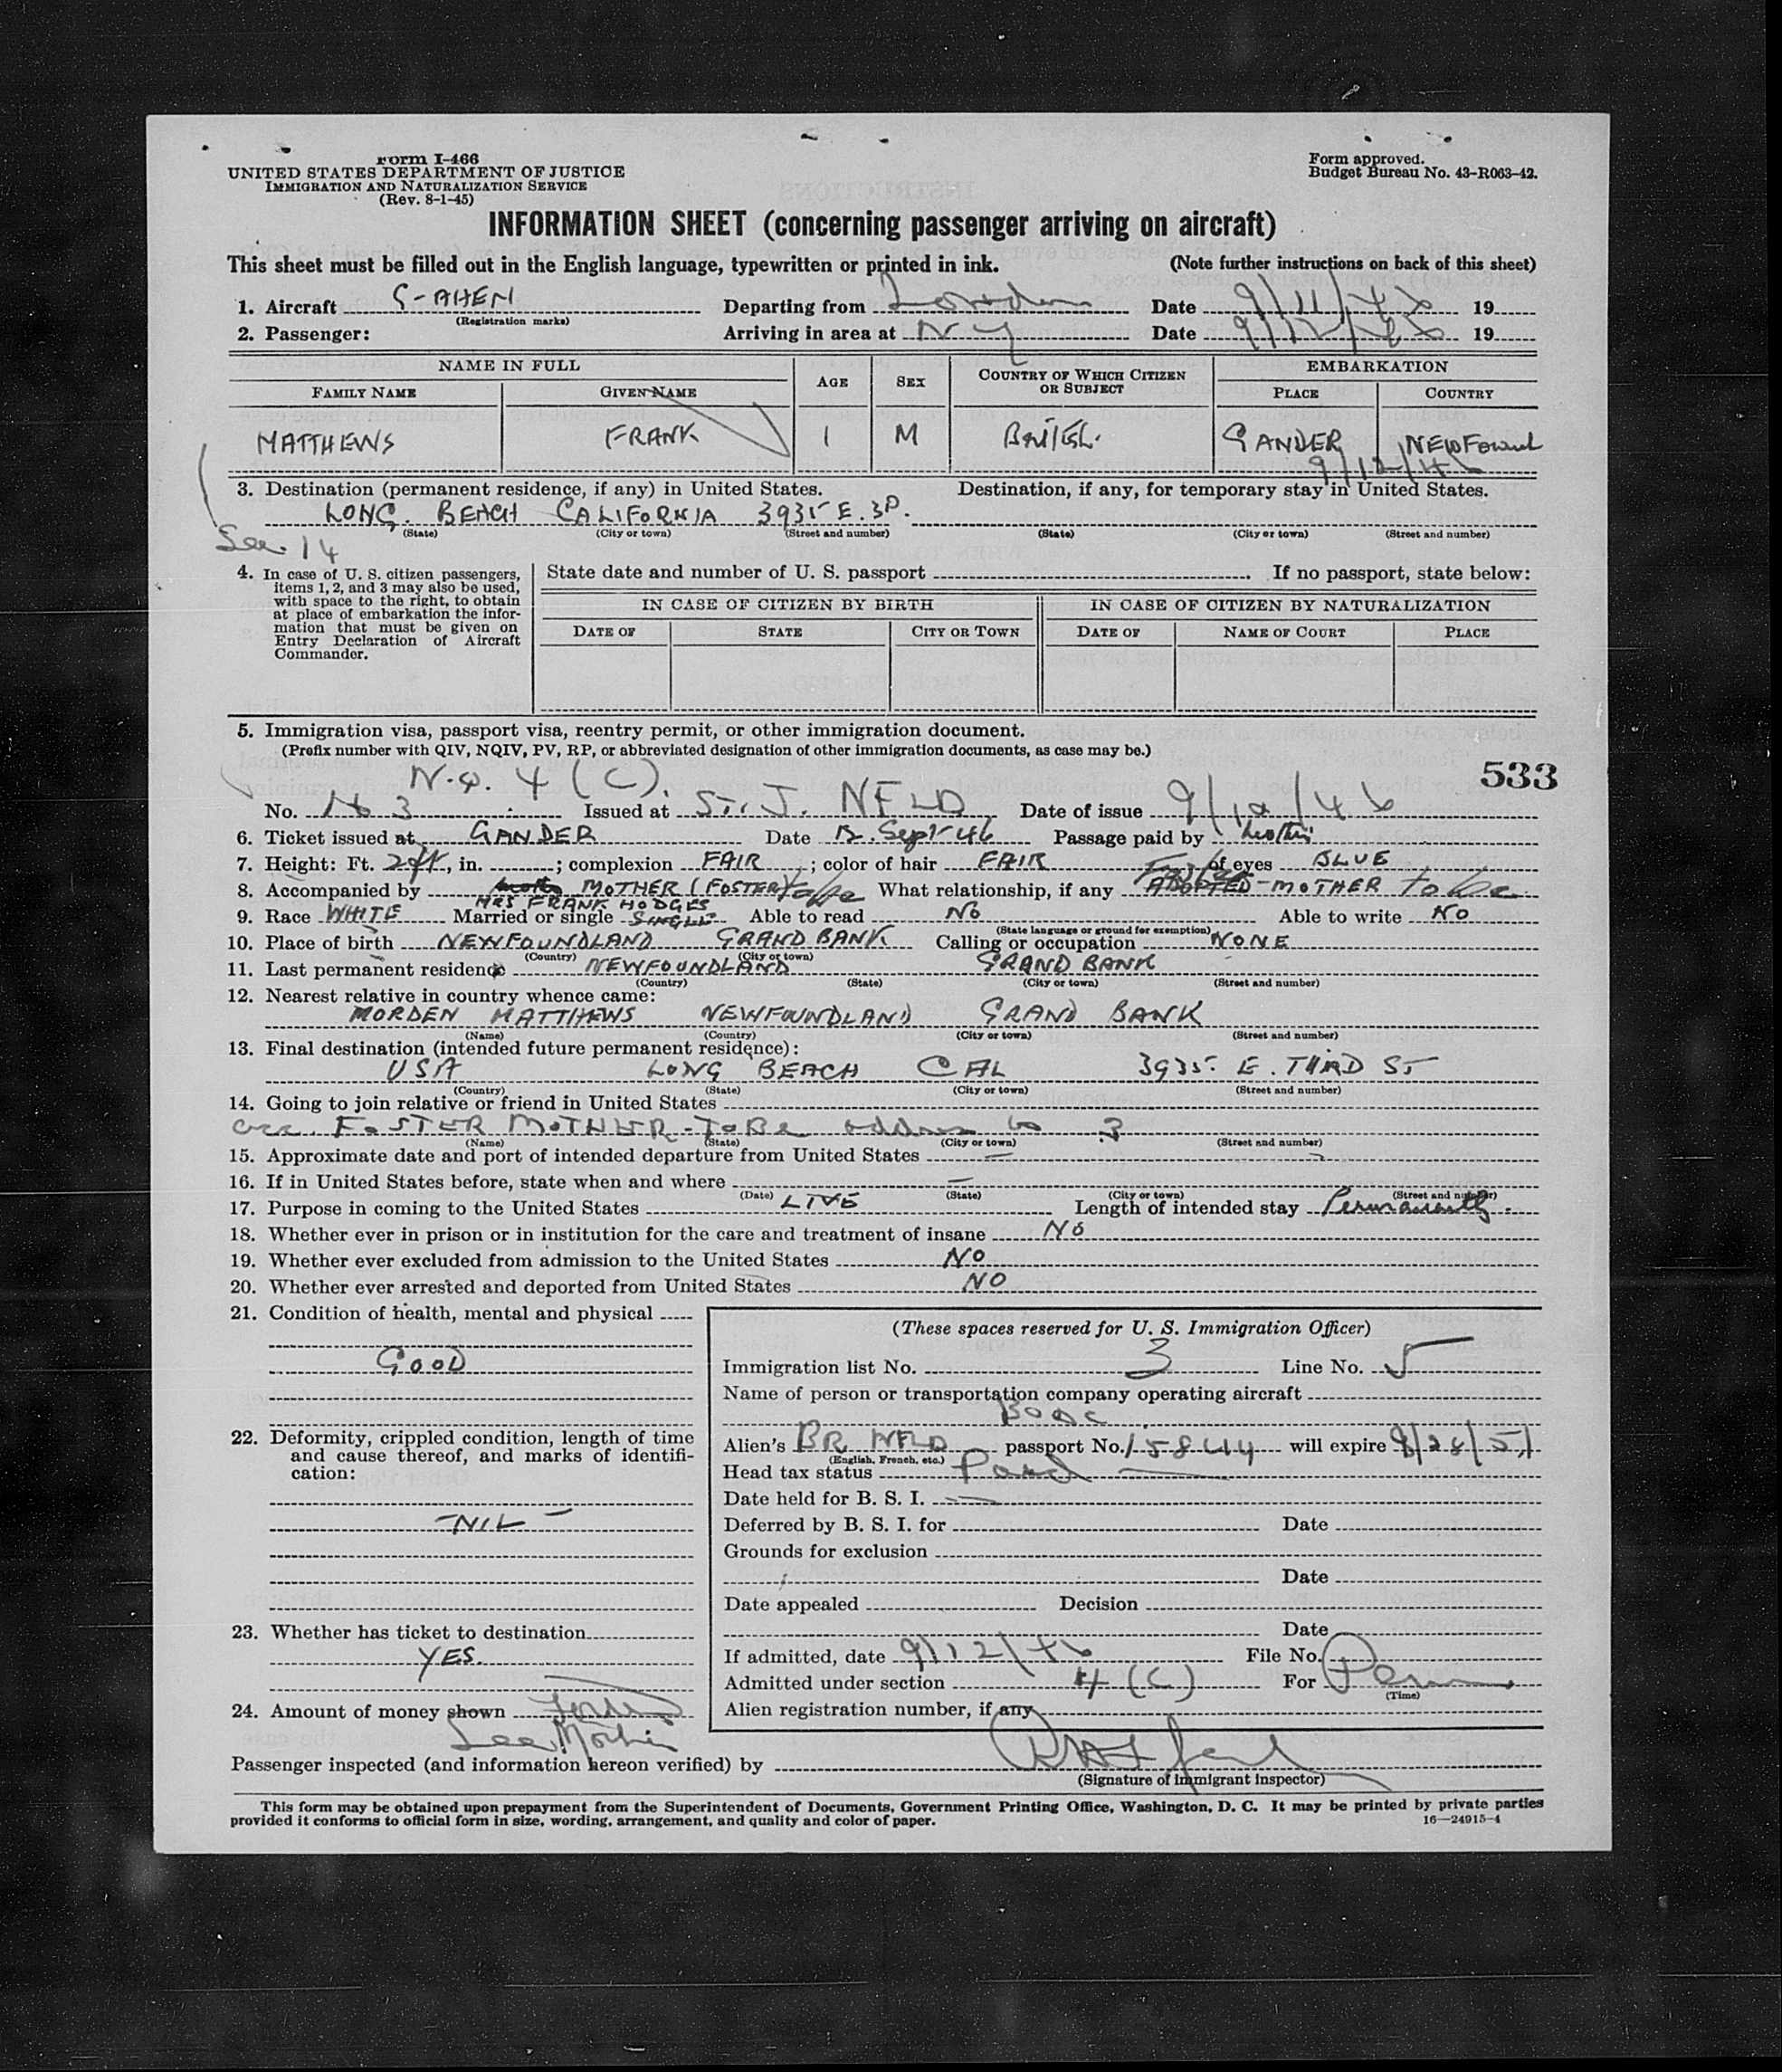 Form I-466
UNITED STATES DEPARTMENT OF JUSTICE
IMMIGRATION AND NATURALIZATION SERVICE
(Rev. 8-1-45)
Form approved.
Budget Bureau No. 43-R063-42.
INFORMATION SHEET (concerning passenger arriving on aircraft)
This sheet must be filled out in the English language, typewritten or printed in ink. (Note further instructions on back of this sheet)
1. Aircraft G-AHEM Departing from London Date 9/11/46 19
(Registration marks)
2. Passenger: Arriving in area at N Y Date 9/12/46 19
NAME IN FULL AGE SEX COUNTRY OF WHICH CITIZEN OR SUBJECT EMBARKATION
FAMILY NAME GIVEN NAME PLACE COUNTRY
MATTHEWS FRANK 1 M British. GANDER NEWFound
9/12/46
3. Destination (permanent residence, if any) in United States. Destination, if any, for temporary stay in United States.
LONG. BEACH CALIFORNIA 3935 E. 3D.
(State) (City or town) (Street and number) (State) (City or town) (Street and number)
See. 14
4. In case of U. S. citizen passengers, items 1, 2, and 3 may also be used, with space to the right, to obtain at place of embarkation the information that must be given on Entry Declaration of Aircraft Commander.
State date and number of U. S. passport If no passport, state below:
IN CASE OF CITIZEN BY BIRTH IN CASE OF CITIZEN BY NATURALIZATION
DATE OF STATE CITY OR TOWN DATE OF NAME OF COURT PLACE
5. Immigration visa, passport visa, reentry permit, or other immigration document.
(Prefix number with QIV, NQIV, PV, RP, or abbreviated designation of other immigration documents, as case may be.)
533
N.Q. 4 (C).
No. 163 Issued at ST. J. NFLD Date of issue 9/10/46
6. Ticket issued at GANDER Date 12. Sept 46 Passage paid by
7. Height: Ft. 2ft, in. ; complexion FAIR ; color of hair FAIR of eyes BLUE
8. Accompanied by MOTHER (FOSTER) to be What relationship, if any Foster ADOPTED-MOTHER to be
MRS FRANK HODGES
9. Race WHITE Married or single SINGLE Able to read No Able to write No
(State language or ground for exemption)
10. Place of birth NEWFOUNDLAND GRAND BANK Calling or occupation NONE
(Country) (City or town)
11. Last permanent residence NEWFOUNDLAND GRAND BANK
(Country) (State) (City or town) (Street and number)
12. Nearest relative in country whence came:
MORDEN MATTHEWS NEWFOUNDLAND GRAND BANK
(Name) (Country) (City or town) (Street and number)
13. Final destination (intended future permanent residence):
USA LONG BEACH CAL 3935. E. THIRD ST
(Country) (State) (City or town) (Street and number)
14. Going to join relative or friend in United States
acc. FOSTER MOTHER-TO BE address as 3
(Name) (State) (City or town) (Street and number)
15. Approximate date and port of intended departure from United States —
16. If in United States before, state when and where —
(Date) (State) (City or town) (Street and number)
17. Purpose in coming to the United States LIVE Length of intended stay Permanently.
18. Whether ever in prison or in institution for the care and treatment of insane NO
19. Whether ever excluded from admission to the United States NO
20. Whether ever arrested and deported from United States NO
21. Condition of health, mental and physical
GOOD
22. Deformity, crippled condition, length of time and cause thereof, and marks of identification:
-NIL-
23. Whether has ticket to destination
YES.
24. Amount of money shown
(These spaces reserved for U. S. Immigration Officer)
Immigration list No. 3 Line No. 5
Name of person or transportation company operating aircraft
BOAC
Alien's BR NFLD passport No. 15844 will expire 8/28/51
(English, French, etc.)
Head tax status Paid
Date held for B. S. I. —
Deferred by B. S. I. for Date
Grounds for exclusion
Date
Date appealed Decision
Date
If admitted, date 9/12/46 File No.
Admitted under section 4 (C) For Perm
(Time)
Alien registration number, if any
Passenger inspected (and information hereon verified) by
(Signature of immigrant inspector)
This form may be obtained upon prepayment from the Superintendent of Documents, Government Printing Office, Washington, D. C. It may be printed by private parties
provided it conforms to official form in size, wording, arrangement, and quality and color of paper. 16—24915-4